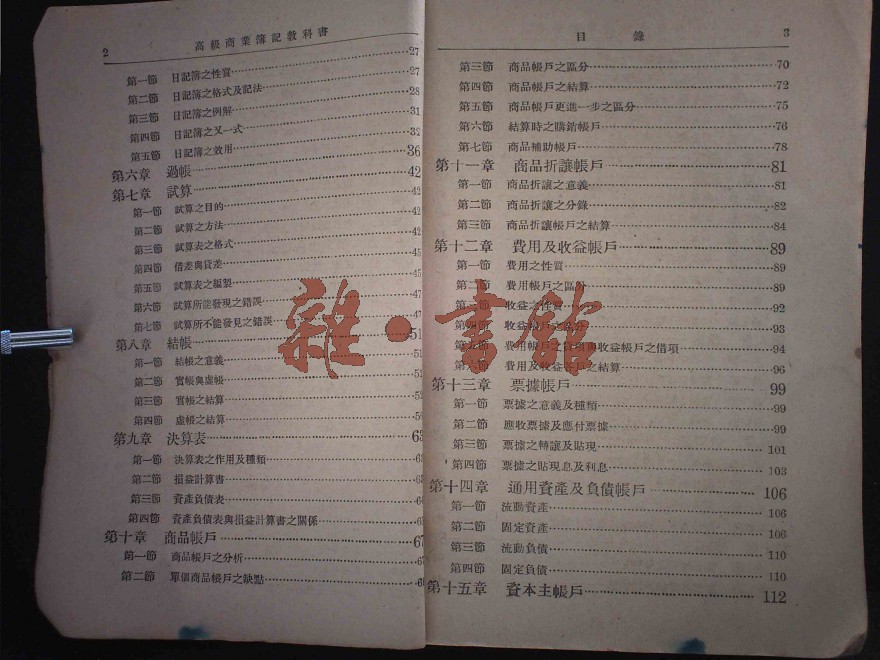 2 高級商業簿記教科書
27
第一節 日記簿之性質 27
第二節 日記簿之格式及記法 28
第三節 日記簿之例解 31
第四節 日記簿之又一式
第五節 日記簿之效用 36
第六章 過帳 42
第七章 試算
第一節 試算之目的
第二節 試算之方法
第三節 試算表之格式
第四節 借差與貸差
第五節 試算表之編製
第六節 試算所能發現之錯誤
第七節 試算所不能發見之錯誤
第八章 結帳 51
第一節 結帳之意義
第二節 實帳與虛帳
第三節 實帳之結算
第四節 虛帳之結算
第九章 決算表
第一節 決算表之作用及種類
第二節 損益計算書
第三節 資產負債表
第四節 資產負債表與損益計算書之關係
第十章 商品帳戶
第一節 商品帳戶之分析
第二節 單個商品帳戶之缺點
目錄 3
第三節 商品帳戶之區分 70
第四節 商品帳戶之結算 72
第五節 商品帳戶更進一步之區分 75
第六節 結算時之購銷帳戶 76
第七節 商品補助帳戶 78
第十一章 商品折讓帳戶 81
第一節 商品折讓之意義 81
第二節 商品折讓之分錄 82
第三節 商品折讓帳戶之結算 84
第十二章 費用及收益帳戶 89
第一節 費用之性質 89
第二節 費用帳戶之區分 89
收益之性質 92
第四節 收益帳戶之區分 93
費用帳戶之貸項與收益帳戶之借項 94
費用及收益帳戶之結算 96
第十三章 票據帳戶 99
第一節 票據之意義及種類 99
第二節 應收票據及應付票據 99
第三節 票據之轉讓及貼現 101
第四節 票據之貼現息及利息 103
第十四章 通用資產及負債帳戶 106
第一節 流動資產 106
第二節 固定資產 106
第三節 流動負債 110
第四節 固定負債 110
第十五章 資本主帳戶 112
雜·書館